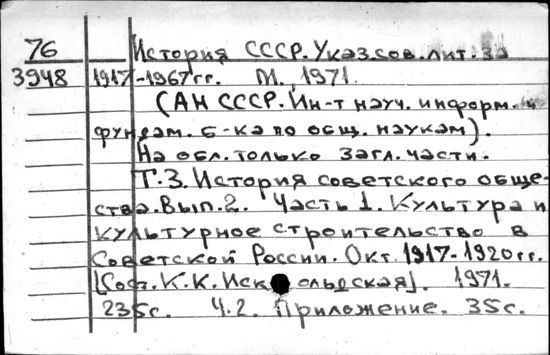 76 История СССР. Указ. сов. лит. за
3948 1917-1967 гг. М., 1971.
(АН СССР. Ин-т науч. информ. и
фундам. б-ка по общ. наукам).
На обл. только загл. части.
Т.3. История советского обще-
ства. Вып. 2. Часть 1. Культура и
культурное строительство в
Советской России. Окт. 1917-1920 гг.
[Сост. К.К. Иск льдская]. 1971.
235 с. Ч.2. Приложение. 35 с.